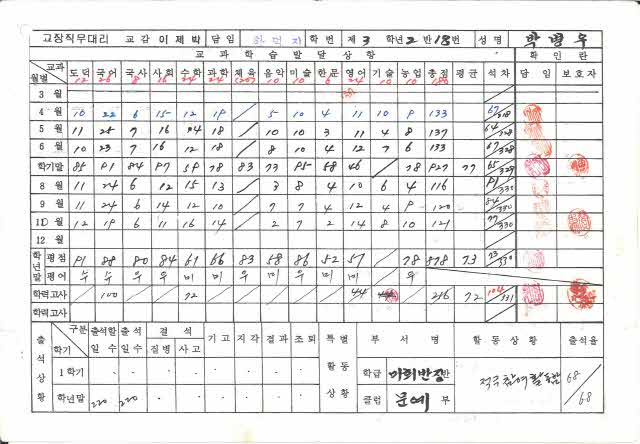 교장직무대리 교감 이제박 담임 학번 제3 학년2반18번 성명 박명우
교과학습발달상황 확인란
교과 월별 도덕 국어 국사 사회 수학 과학 체육 음악 미술 한문 영어 기술 농업 총점 평균 석차 담임 보호자
3월
4월 10 22 6 15 12 19 / 5 10 4 11 10 9 133
5월 11 25 7 16 24 18 / 10 10 3 11 4 8 137
6월 10 23 7 16 12 18 / 8 10 4 12 7 6 133
학기말 85 91 84 97 59 78 83 73 95 58 46 / 78 927 77 65/329
8월 11 24 6 12 15 13 / 3 8 4 10 6 4 116 91/330
9월 11 24 6 14 12 10 / 7 7 4 12 4 9 120 84/330
10월 12 19 6 11 16 14 / 2 7 2 14 8 10 121 77/330
12월
학년말 평점 91 88 80 84 61 66 83 68 86 52 57 / 78 878 73
평어 수 우 우 우 미 미 우 미 우 미 미 / 우
학력고사 100 72 44 216 72 104/331
학력고사
출석상황 구분 학기 출석할일수 출석일수 결석 질병 사고 기고 지각 결과 조퇴 특별활동상황 부서명 활동상황 출석율
1학기 학급 미화반장 반 적극참여활동함 68/68
학년말 220 220 클럽 문예 부